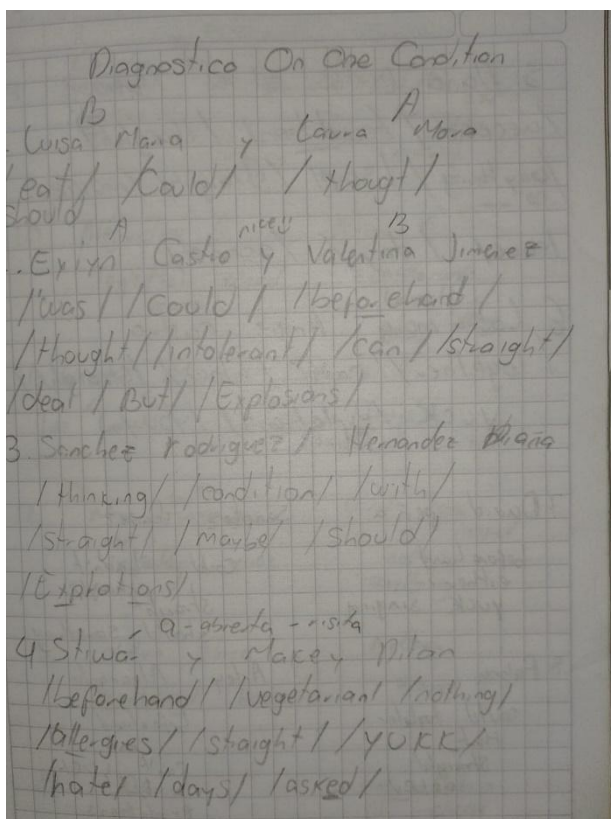 Diagnostico On One Condition
B A
. Luisa Maria y Laura Mora
/eat/ /Could/ /thougt/
should
A nicey B
. Eylyn Castro y Valentina Jimenez
/was/ /could/ /beforehand/
/thought/ /intolerant/ /can/ /straight/
/deal/ /But/ /Explosions/
3. Sanchez rodriguez / Hernandez Diana
/thinking/ /condition/ /with/
/straight/ /maybe/ /should/
/Explotions/
a-abierta -risita
4 Stiwar y Makey Dilan
/beforehand/ /vegetarian/ /nothing/
/allergies/ /straight/ /YUKK/
/hate/ /days/ /asked/